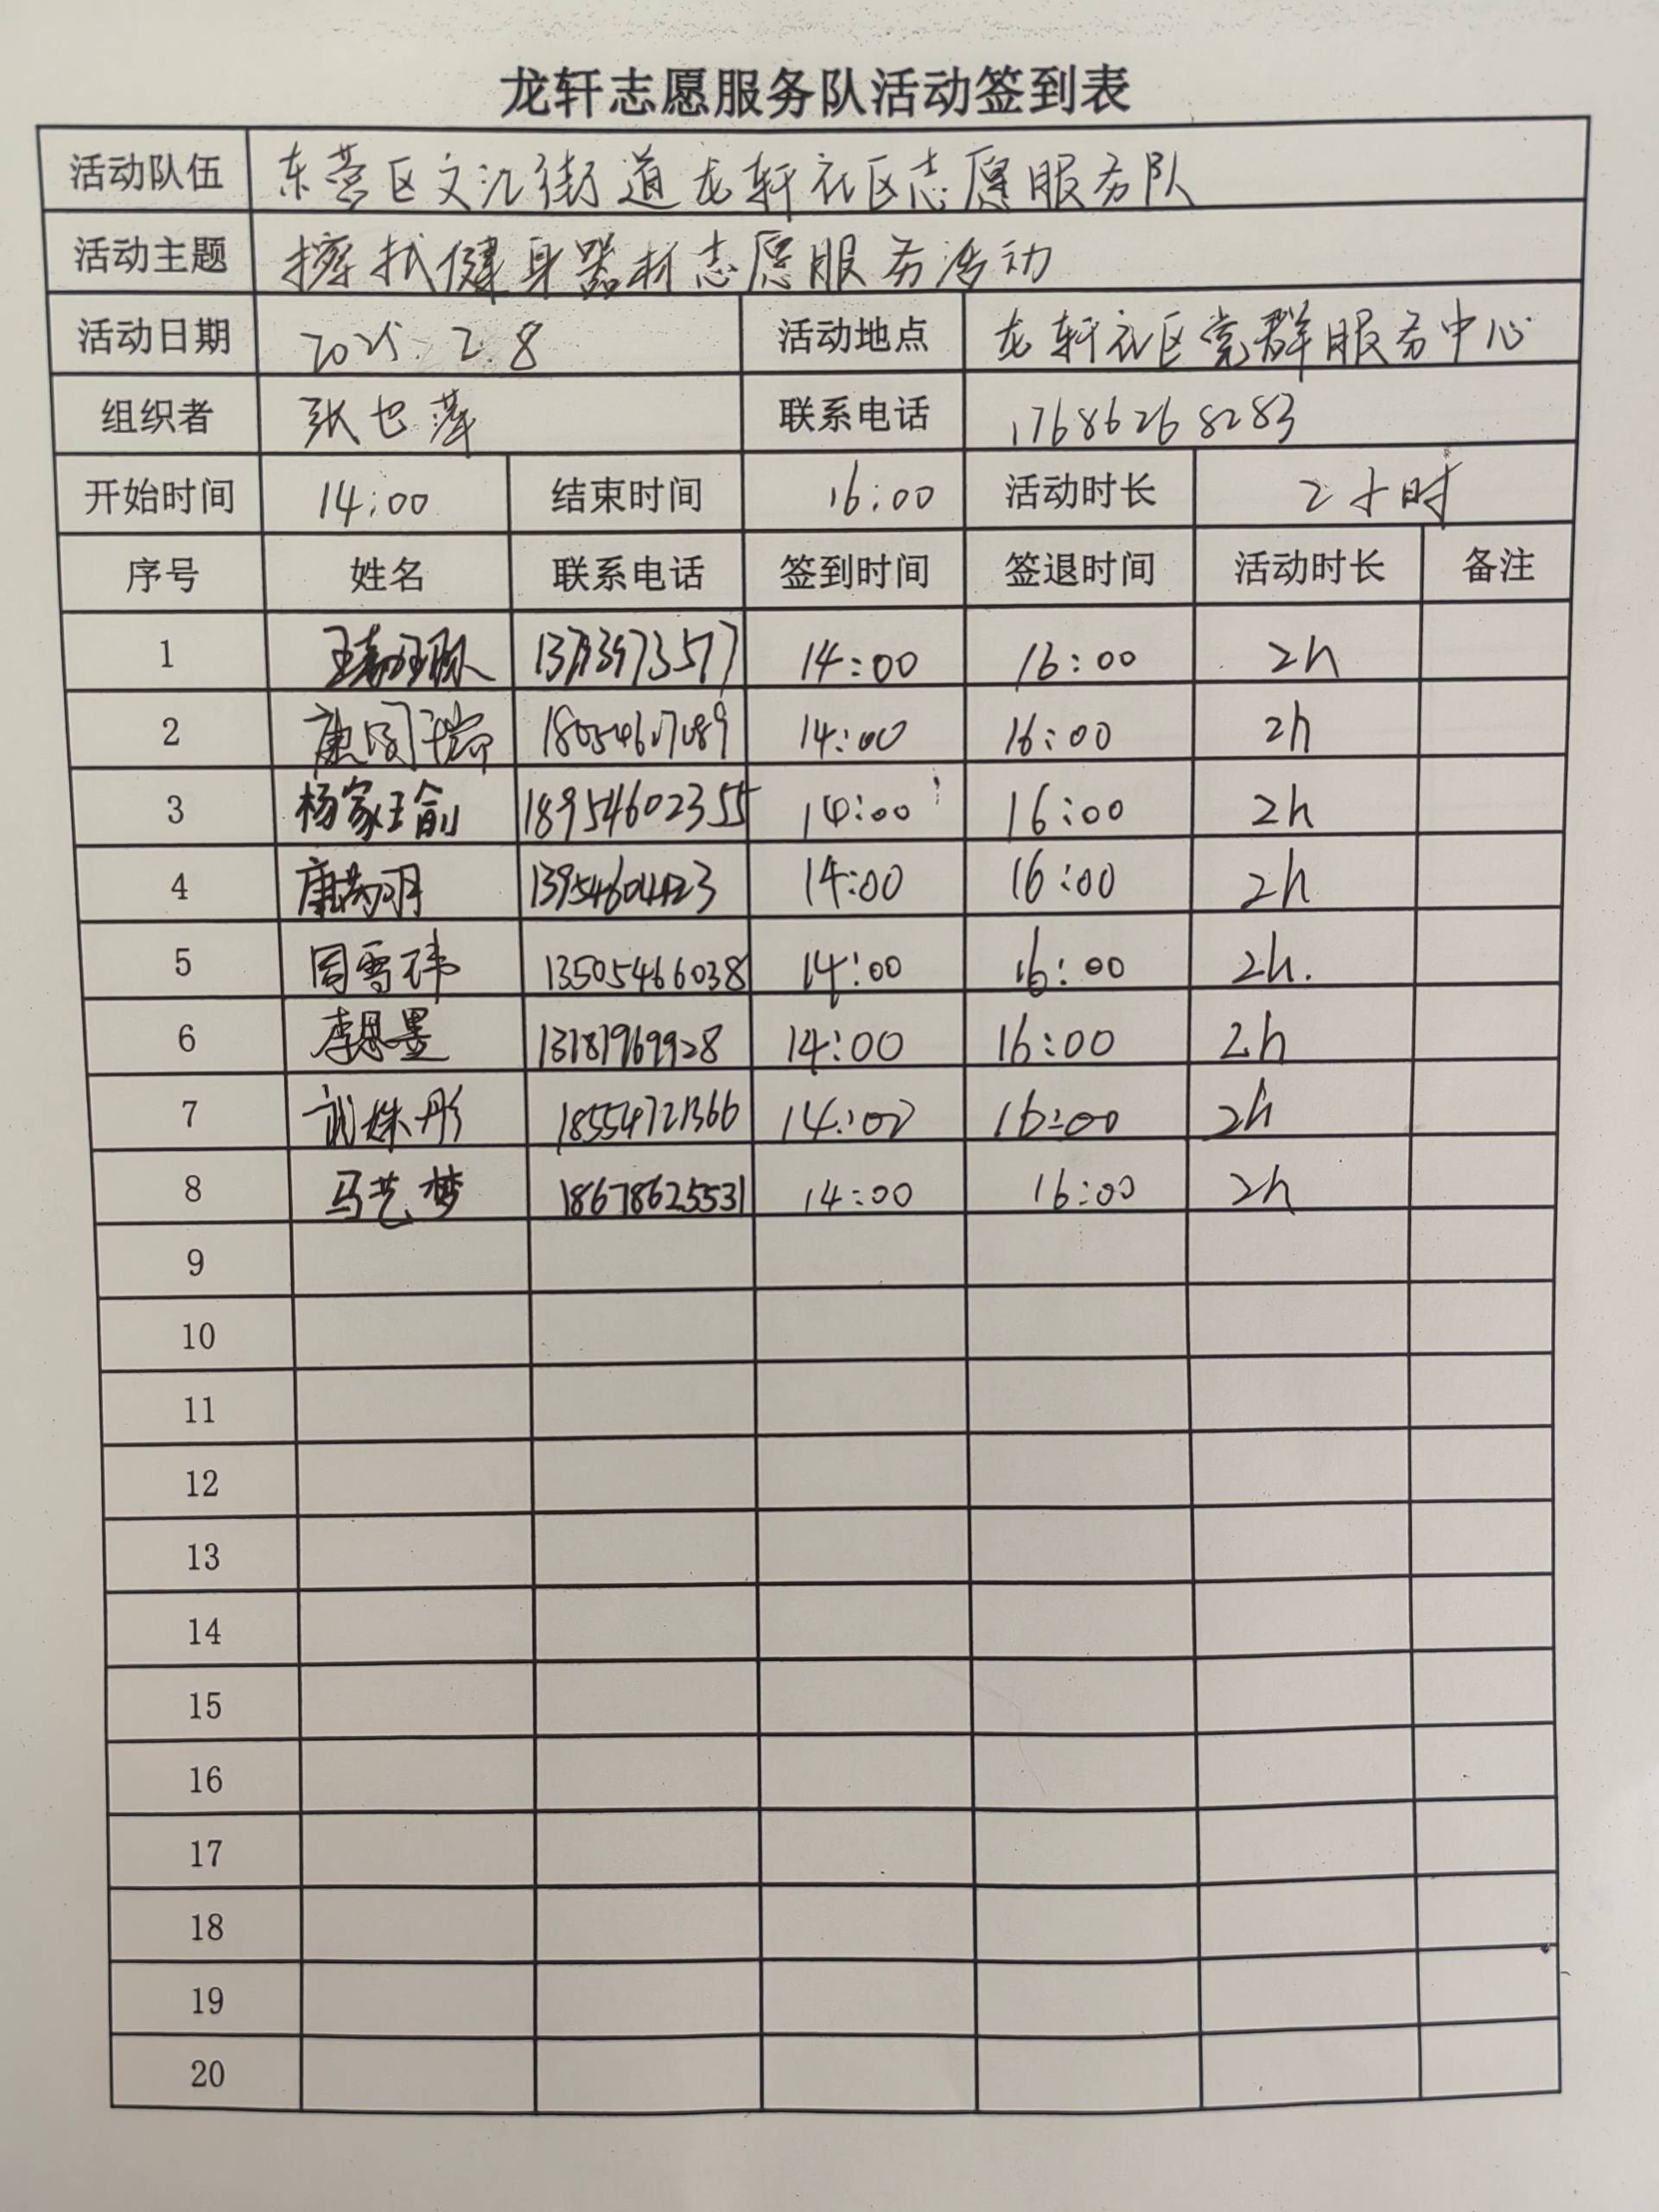 龙轩志愿服务队活动签到表
活动队伍 东营区文汇街道龙轩社区志愿服务队
活动主题 擦拭健身器材志愿服务活动
活动日期 2025.2.8 活动地点 龙轩社区党群服务中心
组织者 张也萍 联系电话 17686268283
开始时间 14:00 结束时间 16:00 活动时长 2小时
序号 姓名 联系电话 签到时间 签退时间 活动时长 备注
1 14:00 16:00 2h
2 14:00 16:00 2h
3 杨家瑜 18954602355 14:00 16:00 2h
4 14:00 16:00 2h
5 周雪玮 13505466038 14:00 16:00 2h.
6 李思墨 14:00 16:00 2h
7 武姝彤 18554721366 14:00 16:00 2h
8 马艺梦 18678625531 14:00 16:00 2h
9
10
11
12
13
14
15
16
17
18
19
20